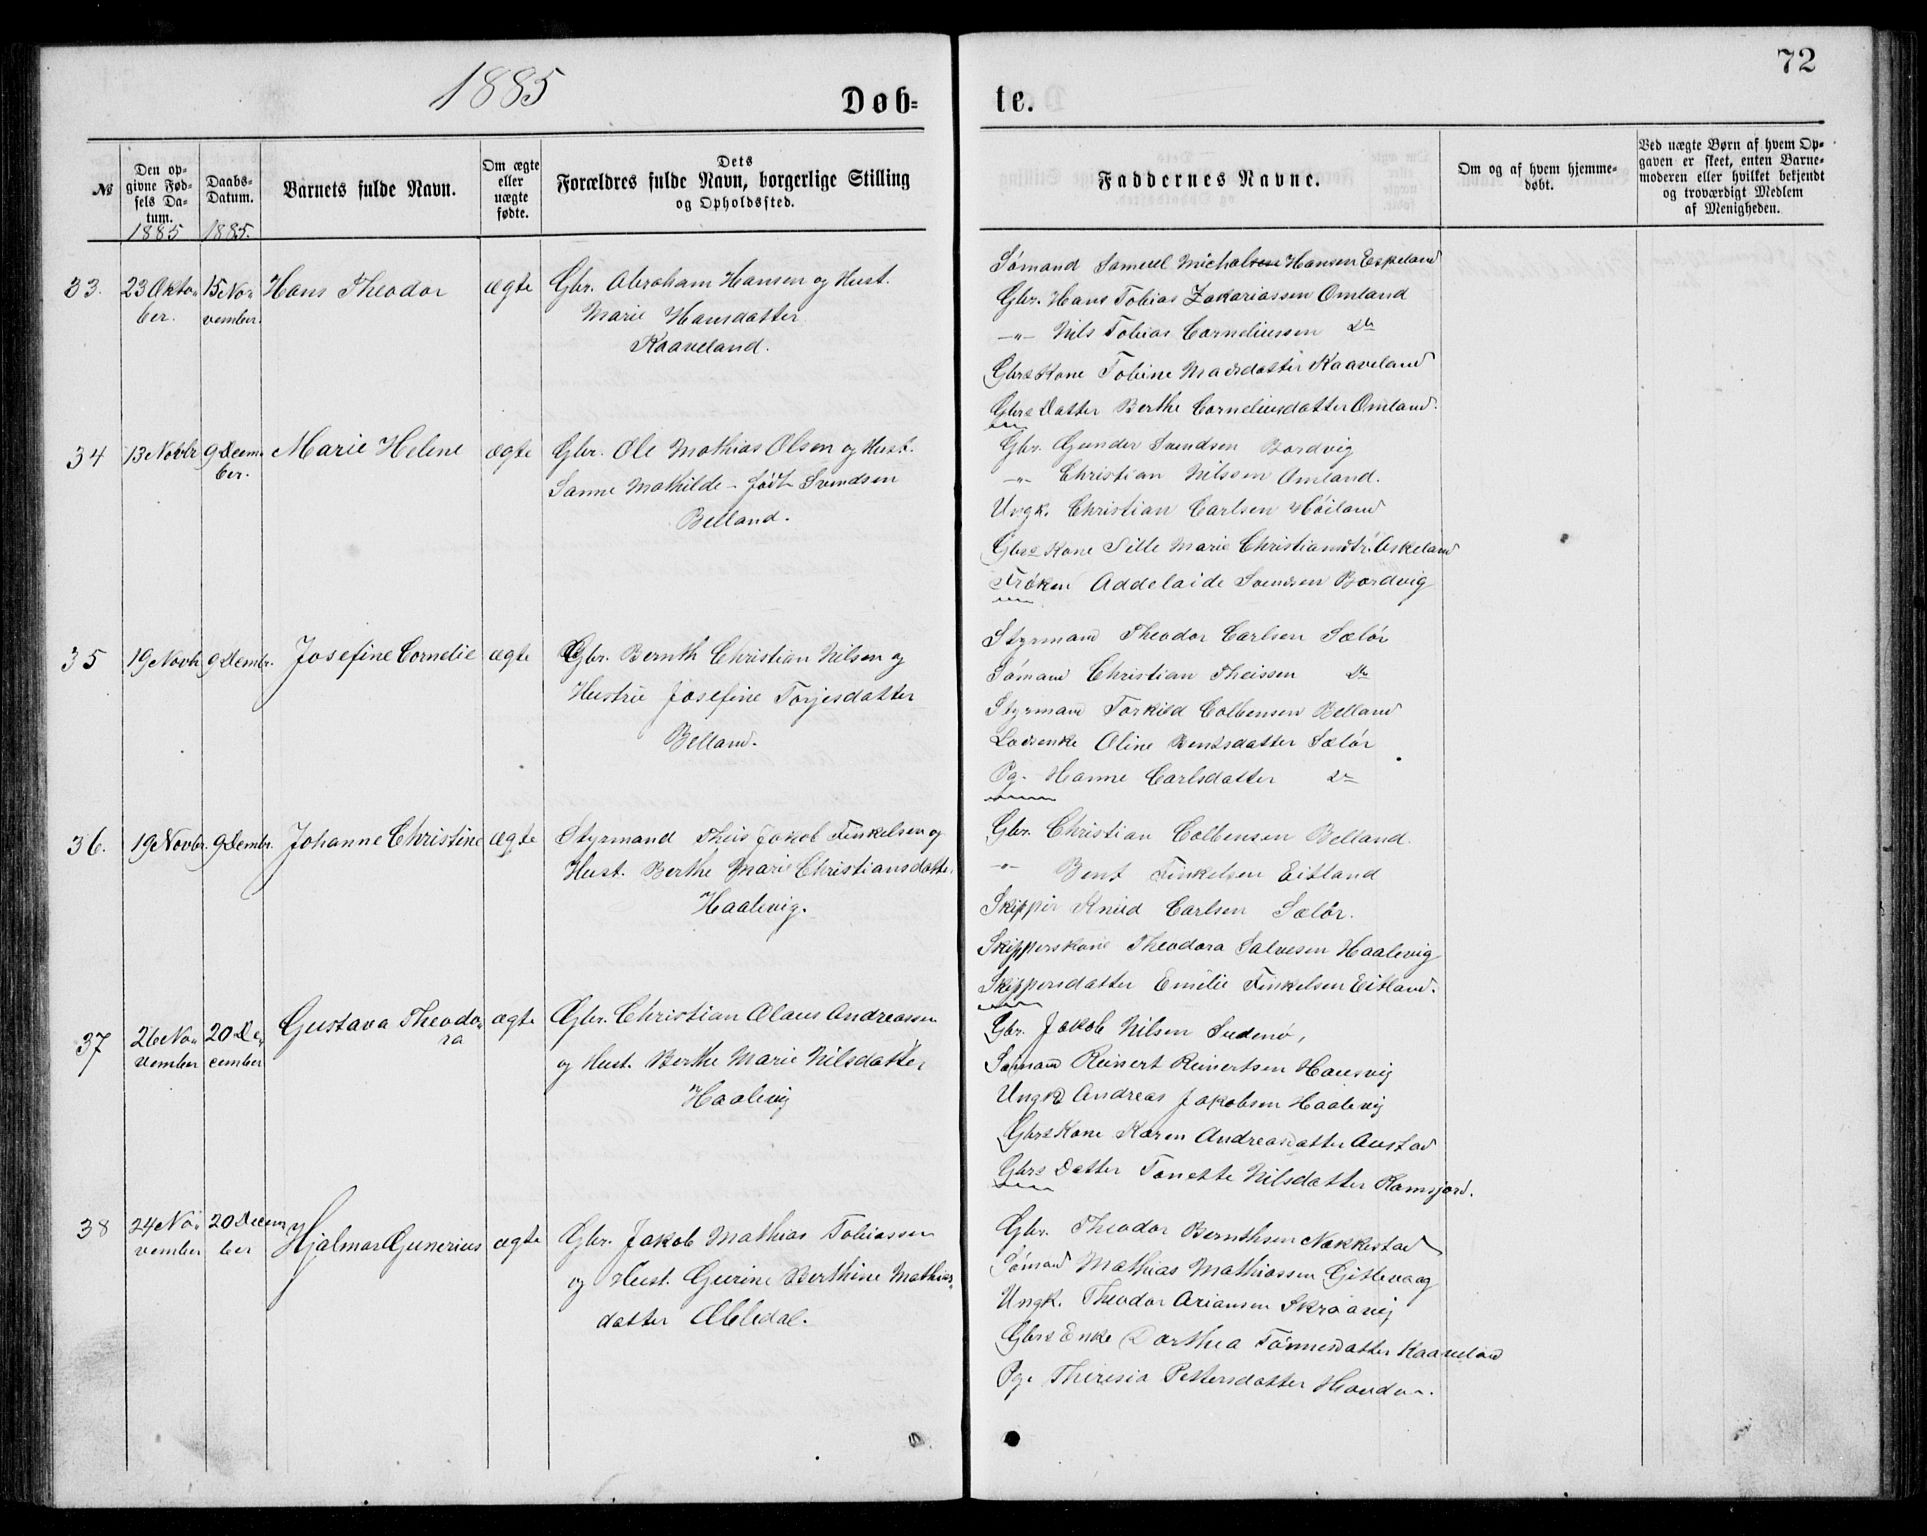 1885
Døb-
te.
72
№
Den op-
givne Fød-
sels Da-
tum.
1885
Daabs-
Datum.
1885.
Barnets fulde Navn.
Om ægte
eller
uægte
fødte.
Dets
Forældres fulde Navn, borgerlige Stilling
og Opholdssted.
Faddernes Navne.
Om og af hvem hjemme-
døbt.
Ved uægte Børn af hvem Op-
gaven er skeet, enten Barne-
moderen eller hvilket bekjendt
og troværdigt Medlem
af Menigheden.
33.
23 Okto-
ber.
15 No-
vember.
Hans Theodor
ægte
Gbr. Abraham Hansen og Hust.
Marie Hansdatter
Kaaveland.
Sømand Samuel Hansen Eskeland
Gbr. Hans Tobias Zakariassen Omland
-"- Nils Tobias Corneliussen Do
Gbrs Kone Tobine Madsdatter Kaaveland
Gbrs Datter Berthe Corneliusdatter Omland.
34
13 Novbr
9 Decem-
ber.
Marie Helene
ægte
Gbr. Ole Mathias Olsen og Hust.
Sanne Mathilde - født Svendsen
Belland.
Gbr. Gunder Svendsen Bordvig
-"- Christian Nilssen Omland.
Ungk. Christian Carlsen Høiland
Gbrs Kone Sille Marie Christiansdtr. Askeland
Frøken Addelaide Svendsen Bordvig
35
19 Novbr
9 Dembr.
Josefine Cornelie
ægte
Gbr. Bernth Christian Nilsen og
Hustru Josefine Torjesdatter
Belland.
Styrmand Theodor Carlsen Sælør
Sømand Christian Theissen Do
Styrmand Torkild Colbensen Belland
Lodsenke Oline Bentsdatter Sælør
Pg. Hanne Carlsdatter Do
36.
19 Novbr.
9 Dembr.
Johanne Christine
ægte
Styrmand Theis Jakob Finkelsen og
Hust. Berthe Marie Christiansdatter
Haalevig.
Gbr. Christian Colbensen Belland.
-"- Bent Finkelsen Eitland
Skipper Knud Carlsen Sælør.
Skipperskone Theodora Salvesen Haalevig
Skippersdatter Emilie Finkelsen Eitland.
37
26 No-
vember
20 De-
cember
Gustava Theodo-
ra
ægte
Gbr. Christian Olaus Andreassen
og Hust. Berthe Marie Nilsdatter
Haalevig
Gbr. Jakob Nilsen Sudenø,
Sømand Reinert Reinertsen Hausvig
Ungk Andreas Jakobsen Haalevig
Gbrs Kone Karen Andreasdatter Austad
Gbrs Datter Tonette Nilsdatter Ramsjord.
38
24 No-
vember
20 Decem-
ber
Hjalmar Gunerius
ægte
Gbr. Jakob Mathias Tobiassen
og Hust. Gurine Berthine Mathias-
datter Æbledal.
Gbr. Theodor Bernthsen Nakkestad
Sømand Mathias Mathiassen Gittevaag
Ungk. Theodor Ariansen Skraavig
Gbrs Enke Dorthea Tønnesdatter Kaaveland
Pg. Theresia Pettersdatter